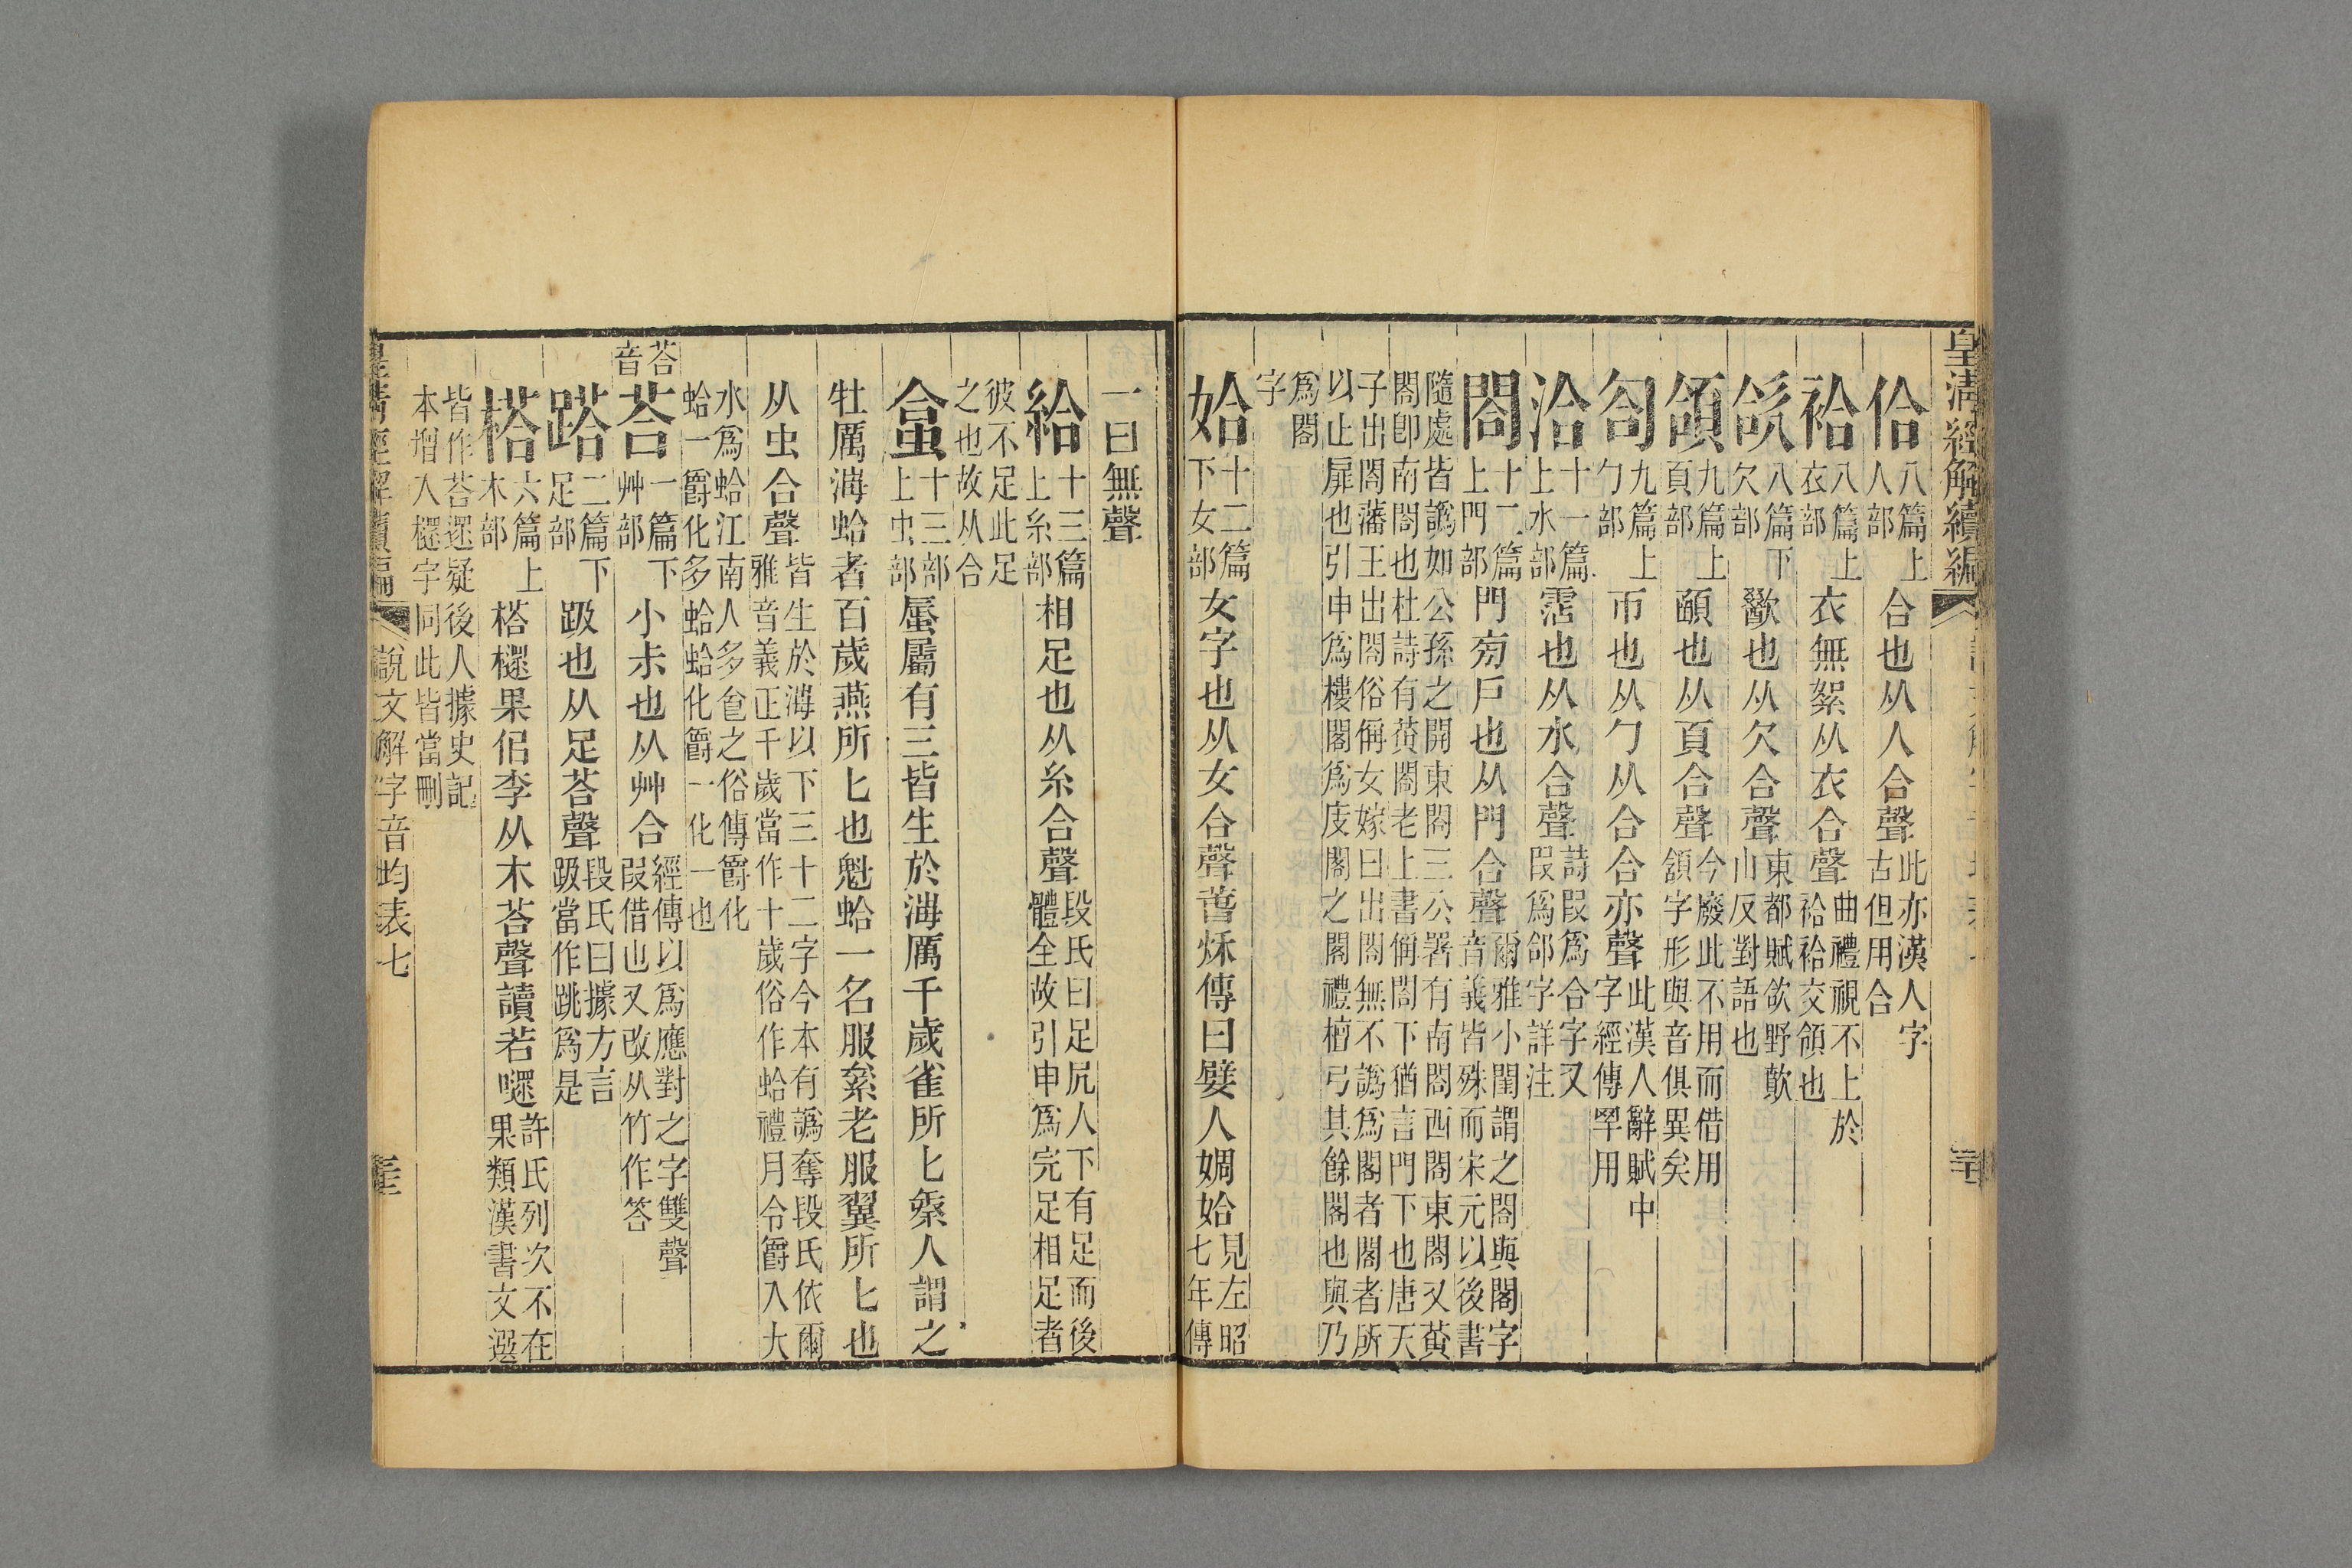 皇清經解續編
佮八篇上人部合也从人合聲此亦漢人字古但用合
袷八篇上衣部衣無絮从衣合聲曲禮視不上於袷袷交領也
欱八篇下欠部歠也从欠合聲東都賦欲野歕山反對語也
頜九篇上頁部頤也从頁合聲今廢此不用而借用頷字形與音俱異矣
匌九篇上勹部帀也从勹从合合亦聲此漢人辭賦中字經傳罕用
洽十一篇上水部霑也从水合聲詩叚爲合字又叚爲郃字詳注
閤十二篇上門部門旁戶也从門合聲爾雅小閨謂之閤與閣字音義皆殊而宋元以後書
隨處皆譌如公孫之開東閤三公署有南閤西閤東閤又黃閤卽南閤也杜詩有黃閤老上書偁閤下猶言門下也唐天
子出閤藩王出閤俗偁女嫁曰出閤無不譌爲閣者閣者所以止扉也引申爲樓閣爲庋閣之閣禮檀弓其餘閣也與乃
爲閣字
姶十二篇下女部女字也从女合聲萅秌傳曰嬖人婤姶見左昭七年傳
一曰無聲
給十三篇上糸部相足也从糸合聲段氏曰足凥人下有足而後體全故引申爲完足相足者
彼不足此足之也故从合
蛤十三部上虫部蜃屬有三皆生於海厲千歲雀所匕秦人謂之
牡厲海蛤者百歲燕所匕也魁蛤一名服絫老服翼所匕也
从虫合聲皆生於海以下三十二字今本有譌奪段氏依爾雅音義正千歲當作十歲俗作蛤禮月令爵入大
水爲蛤江南人多食之俗傳爵化蛤一爵化多蛤蛤化爵一化一也
荅音
荅一篇下艸部小尗也从艸合經傳以爲應對之字雙聲叚借也又改从竹作答
蹹二篇下足部趿也从足荅聲段氏曰據方言趿當作跳爲是
榙六篇上木部榙㯚果佀李从木荅聲讀若嚃許氏列次不在果類漢書文選
皆作荅遝疑後人據史記本增入㯚字同此皆當刪
皇清經解續編
說文解字音均表七